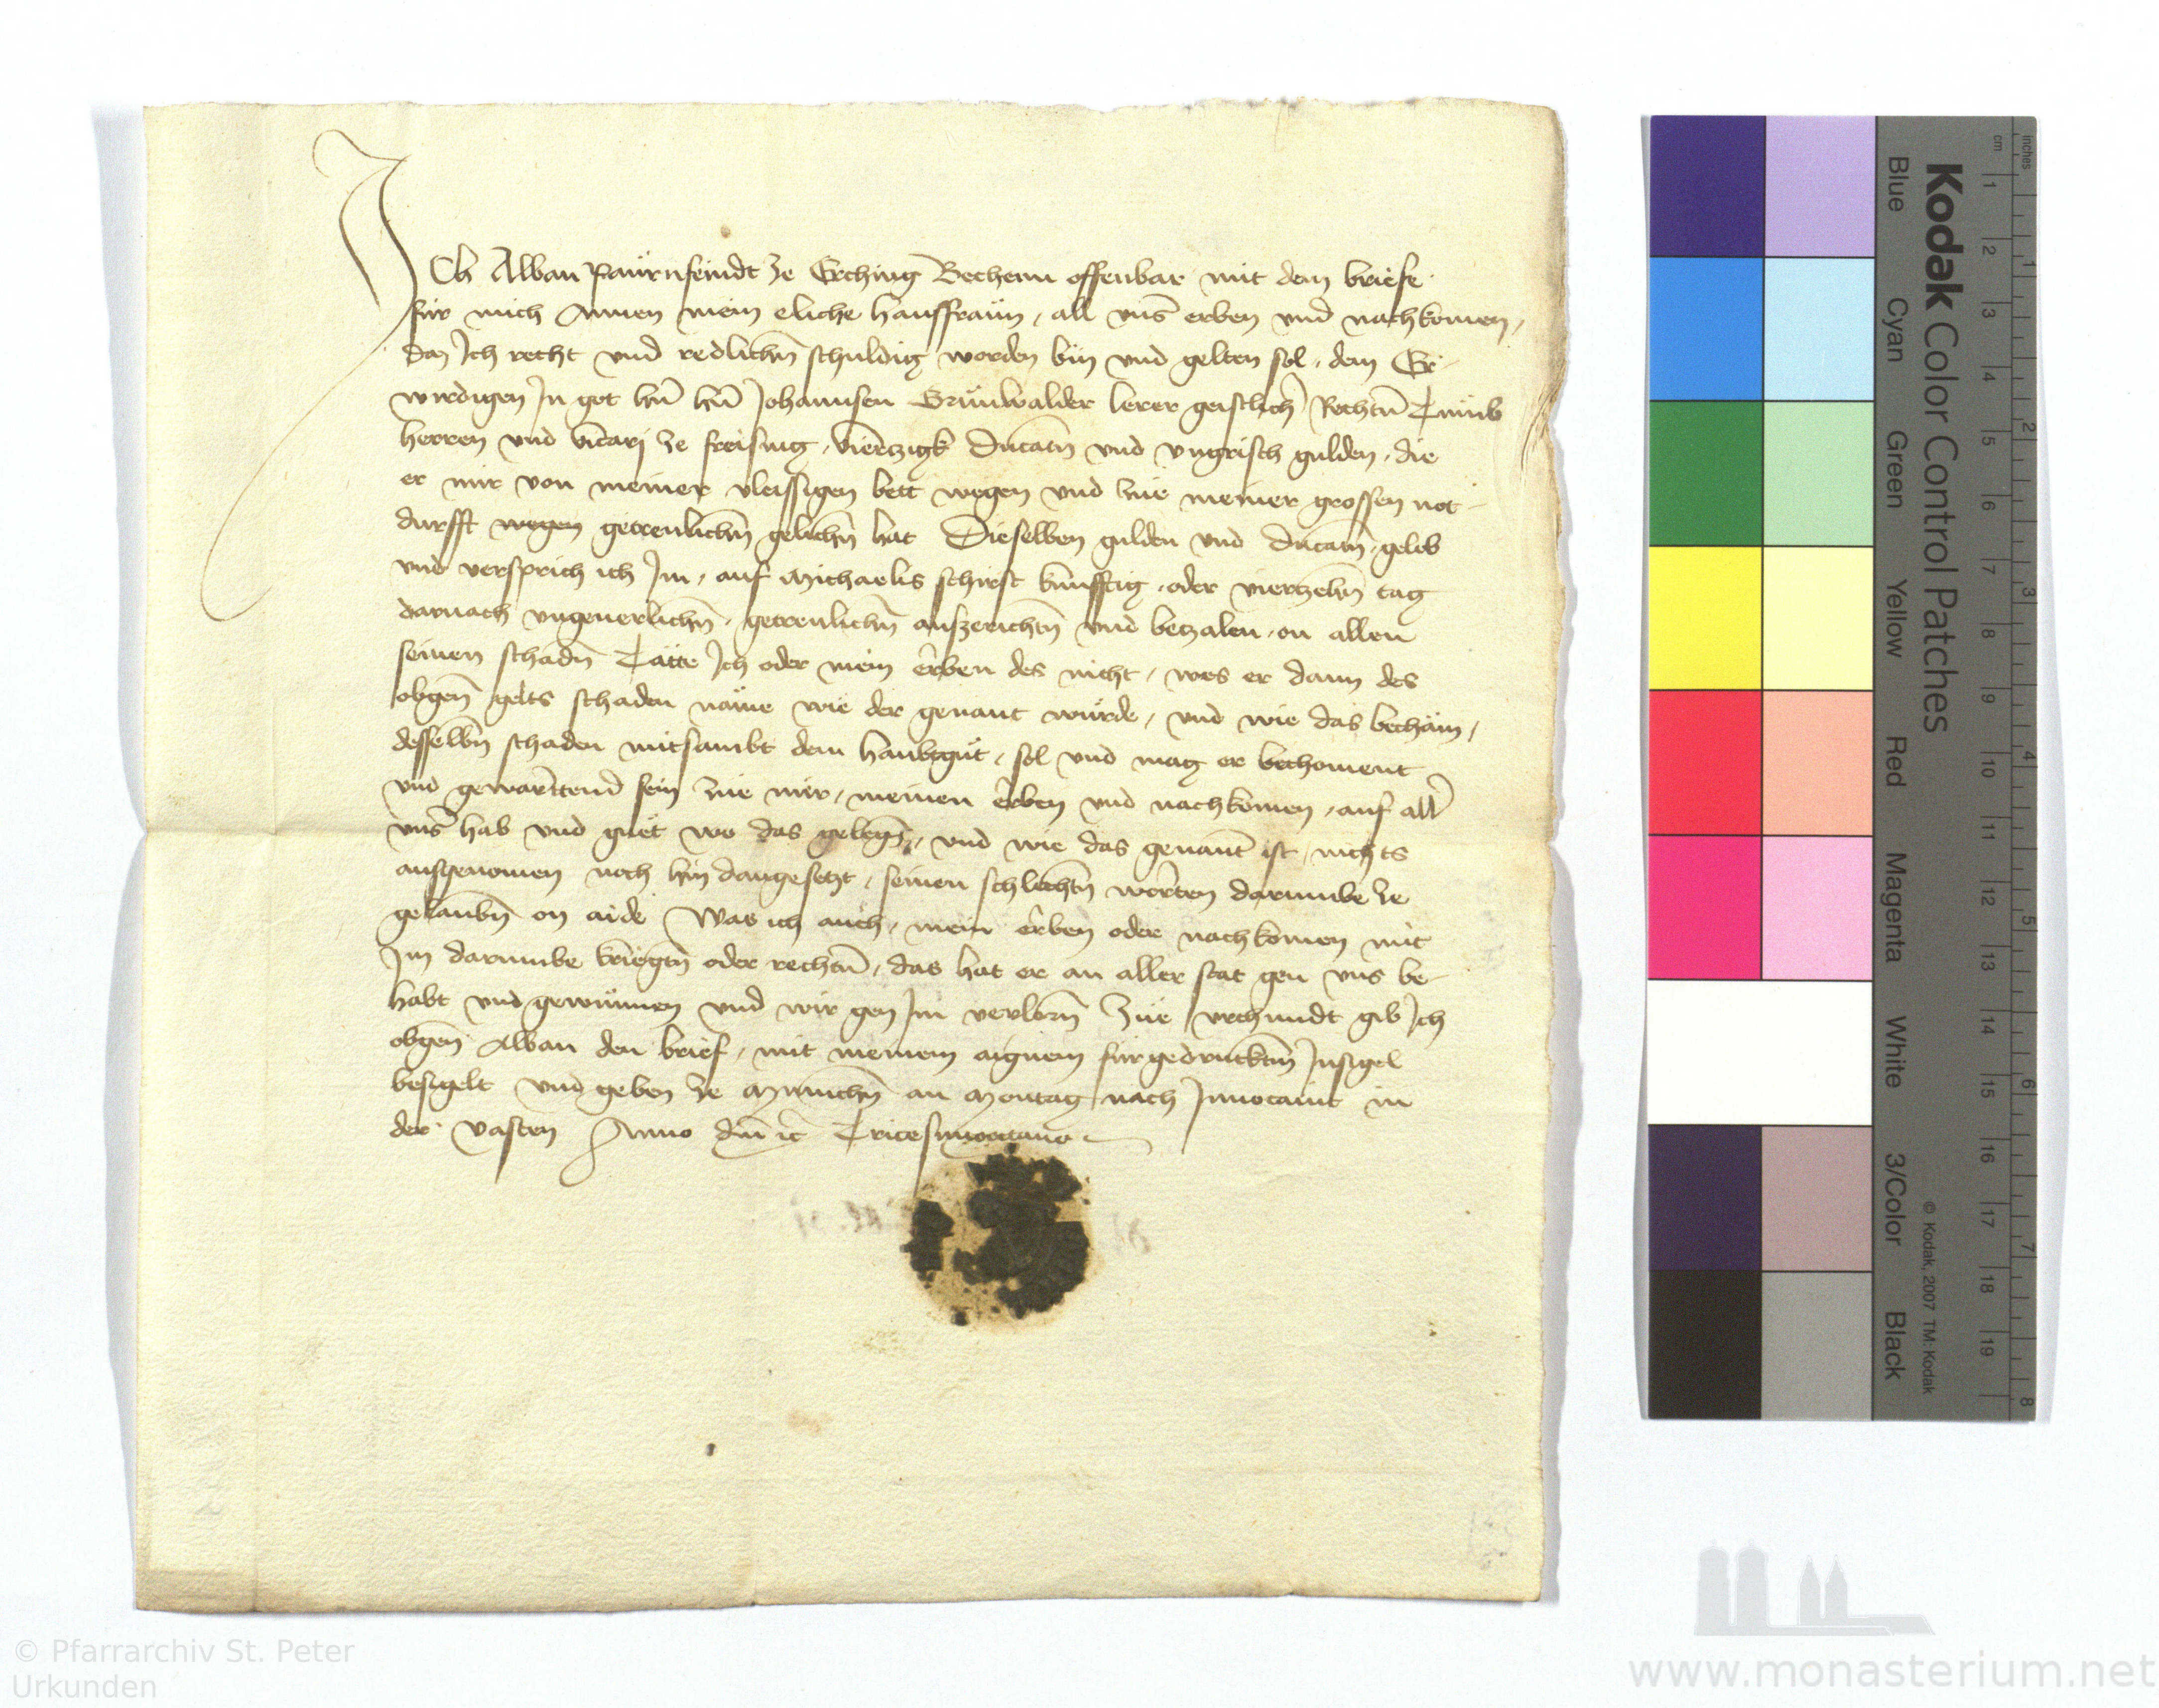 Ich Alban Paẅrnfeindt ze Erching Bechenn offenbar mit dem briefe
für mich Annen mein eliche hausfraẅn, all vns̄ erben vnd nachkömen,
daz Ich recht vnd redlichn̄ schuldig worden bin vnd gelten sol, dem Er-
wirdigen In got hn̄ hn̄ Johannsen Grünwalder lerer geistlich̄ Rechtn̄ Tumb
herren vnd vicarj ze freising, viertzigk Ducatn̄ vnd vngrisch gulden, die
er mir von meiner vleissigen bett wegen vnd zue meiner grossen not-
durfft wegen getreulichn̄ gelichn̄ hat Dieselben gulden vnd Ducatn̄, gelob
vnd versprich ich Im, auf Michaelis schirst künfftig, oder viertzehn̄ tag
darnach vngeuerlichn̄, getreulichn̄ auszerichtn̄ vnd betzalen, on allen
seinen schadn̄ Tätte Ich oder mein erben des nicht, wes er dann des
obgen̄ gelts schaden näme wie der genant würde, vnd wie das bechäm,
desselbn̄ schaden mitsambt dem haubtgut, sol vnd mag er bechoment
vnd gewarttend sein zue mir, meinen erben vnd nachkömen, auf all̄
vns̄ hab vnd guet wo das gelegn̄, vnd wie das genant ist, nichts
ausgenomen noch hin dangesetzt, seinen schlechtn̄ worten darumbe ze
gelaubn̄ on aide Was ich auch, mein erben oder nachkömen mit
Im darumbe kriegtn̄ oder rechtn̄, das hat er an aller stat gen vns be-
habt vnd gewunnen vnd wir gen Im verlorn̄ Züe vrchundt gib Ich
obgen̄ Alban den brief, mit meinem aignem fürgedrucktm̄ Insigel
besigelt vnd geben ze Münichn̄ an Montag nach Inuocauit in
der vasten Anno dn̄i ꝛc̄ Tricesimooctauo
Kodak Color Control Patches
Blue Cyan Green Yellow Red Magenta White 3/Color Black
© Kodak, 2007 TM: Kodak
inches 1 2 3 4 5 6 7 8
cm 1 2 3 4 5 6 7 8 9 10 11 12 13 14 15 16 17 18 19
© Pfarrarchiv St. Peter
Urkunden
www.monasterium.net